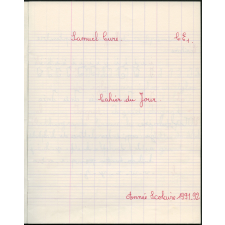 Samuel Cure. C E 1.
Cahier du Jour
Année Scolaire 1991.92